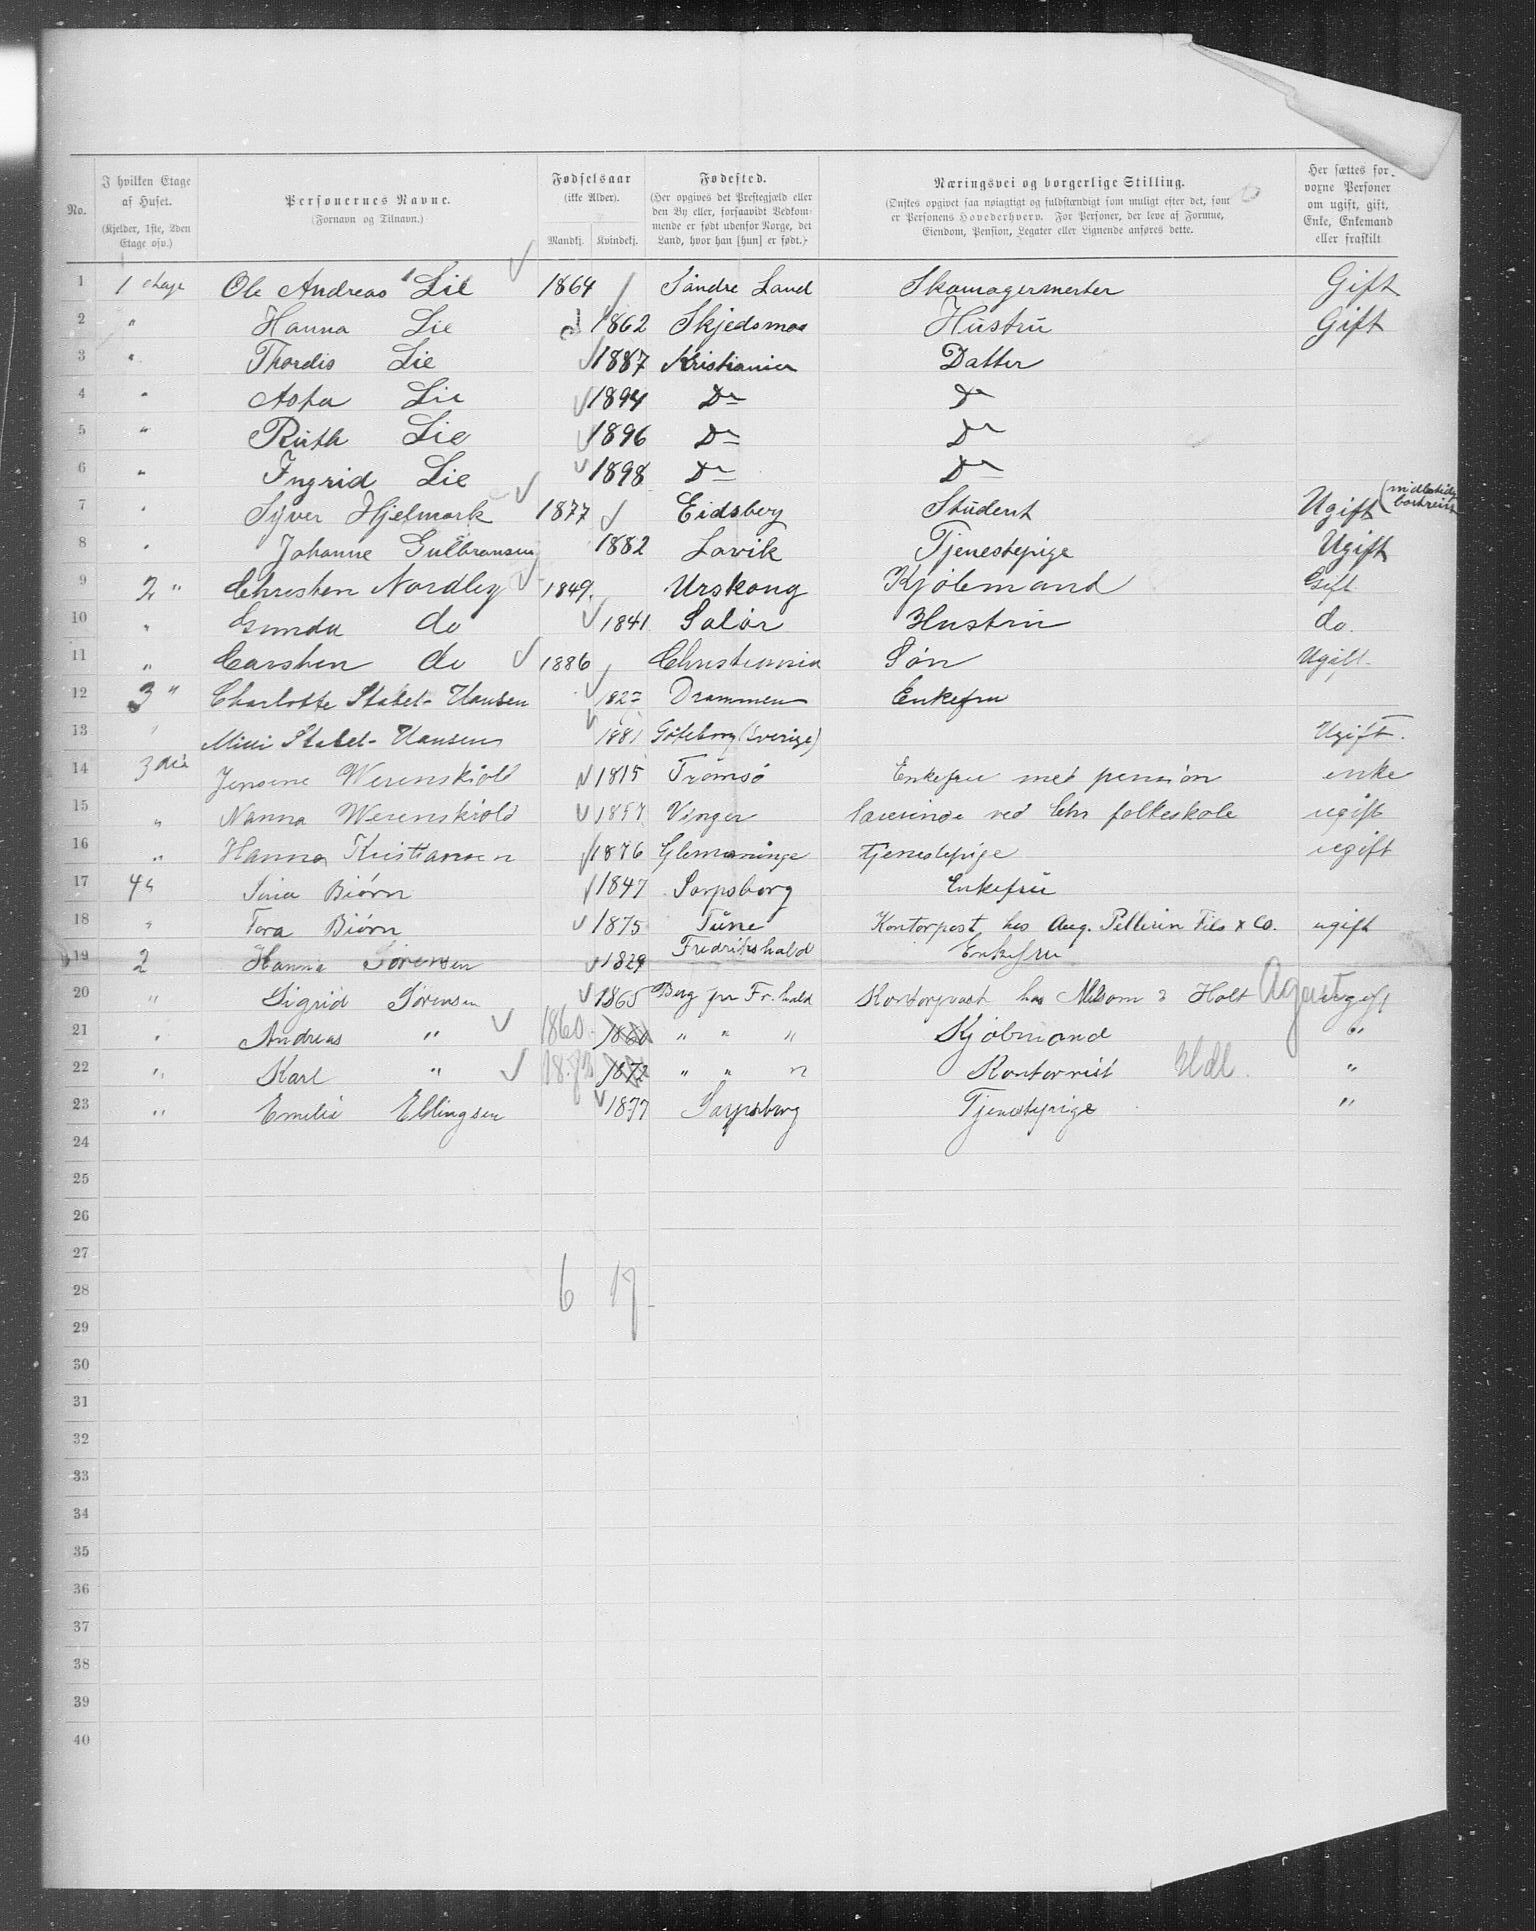 No.
I hvilken Etage af Huset. (Kjelder, 1ste, 2den Etage osv.)
Personernes Navne. (Fornavn og Tilnavn.)
Fødselsaar (ikke Alder). Mandkj. Kvindekj.
Fødested. (Her opgives det Prestegjæld eller den By eller, forsaavidt Vedkommende er født udenfor Norge, det Land, hvor han [hun] er født.)
Næringsvei og borgerlige Stilling. (Ønskes opgivet saa nøiagtigt og fuldstændigt som muligt efter det, som er Personens Hovederhverv. For Personer, der leve af Formue, Eiendom, Pension, Legater eller Lignende anføres dette.
Her sættes for voxne Personer om ugift, gift, Enke, Enkemand eller fraskilt
1 1 etage Ole Andreas Lie 1864 Søndre Land Skomagermester Gift
2 " Hanna Lie 1862 Skjedsmoe Hustru Gift
3 " Thordis Lie 1887 Kristiania Datter
4 " Asta Lie 1894 Do Do
5 " Ruth Lie 1896 Do Do
6 " Ingrid Lie 1898 Do Do
7 " Syver Hjelmark 1877 Eidsberg Student Ugift (midlertidig bortreist
8 " Johanne Gulbransen 1882 Lavik Tjenestepige Ugift
9 2 " Christen Nordby 1849. Urskoug Kjøbmand Gift
10 " Gunda do 1841 Solør Hustru do.
11 " Carsten do 1886 Christiania Søn Ugift.
12 3 " Charlotte Stabel-Hansen 182 Drammen Enkefru
13 " Milli Stabel-Hansen 1881 Göteborg (Sverige) Ugift.
14 3die Jensine Werenskiold 1815 Tromsø Enkefru med pension enke
15 " Nanna Werenskiold 1857 Vinger lærerinde ved Chr folkeskole ugift
16 " Hanna Kristiansen 1876 Glemminge tjenestepige ugift
17 4 " Sina Biørn 1847 Sarpsborg Enkefru
18 " Tora Biørn 1875 Tune Kontorpost hos Aug. Pellerin Fils & Co. ugift
19 2 Hanna Sørensen 1829 Fredrikshald Enkefru
20 " Sigrid Sørensen 1865 Berg pr Fr.hald Kontorpost hos Holt Agent ugift
21 " Andreas " 1860. 1860 " " " Kjøbmand "
22 " Karl " 1872 1872 " " " Kontorist Udl. "
23 " Emilie Ellingsen 1877 Sarpsborg Tjenestepige "
24
25
26
27
28
6 17
29
30
31
32
33
34
35
36
37
38
39
40